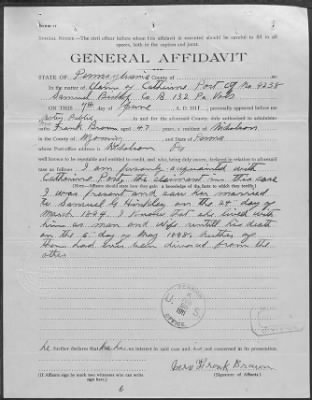 SPECIAL NOTICE.—The civil officer before whom this affidavit is executed should be careful to fill in all
spaces, both in the caption and jurat.
GENERAL AFFIDAVIT
STATE OF Pennsylvania County of
In the matter of Claim of Catherine Post
Samuel Co B 132 Pa Vols
ON THIS 7th day of June A. D. 1911 personally appeared before me
Notary Public in and for the aforesaid County duly authorized to administer
oaths Mrs Frank Brown aged 47 years, a resident of Nicholson
in the County of Wyoming and State of Penna
whose Post-office address is Nicholson Pa
well known to be reputable and entitled to credit, and who, being duly sworn, declared in relation to aforesaid
case as follows: I am personly acquainted with
(NOTE.—Affiants should state how they gain a knowledge of the facts to which they testify.)
Catherine Post the claimant in this case
I was present and saw her married
to Samuel G on the 24" day of
March 1894. I know that she lived with
him as man and wife untill his death
on the 6" day of May 1898. neither of
them had ever been divorced from the
other
U. S.
PENSION
OFFICE
1911
he further declares that he has no interest in said case and not concerned in its prosecution
Mrs Frank Brown
(If Affiants sign by mark two witnesses who can write
sign here.)
(Signature of Affiants.)
6